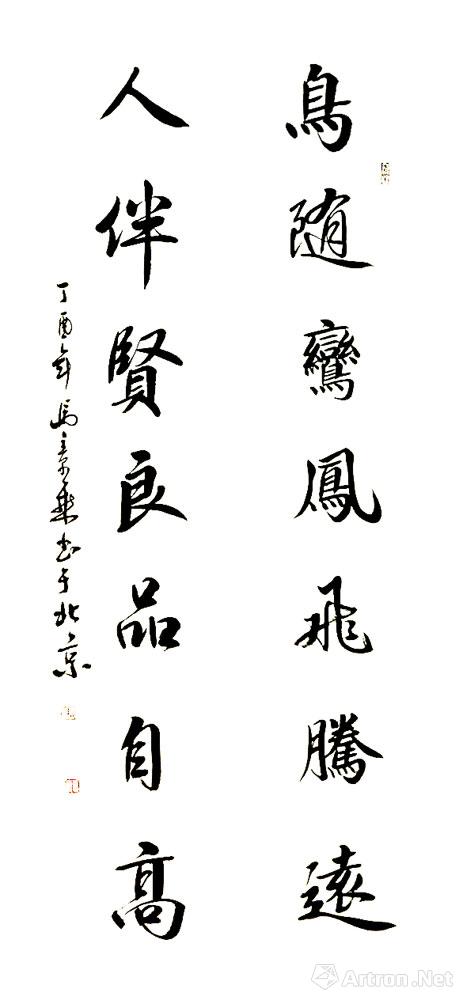 鳥随鸞鳳飛騰遠
人伴賢良品自高
丁酉年馬景乘书于北京
Artron.Net